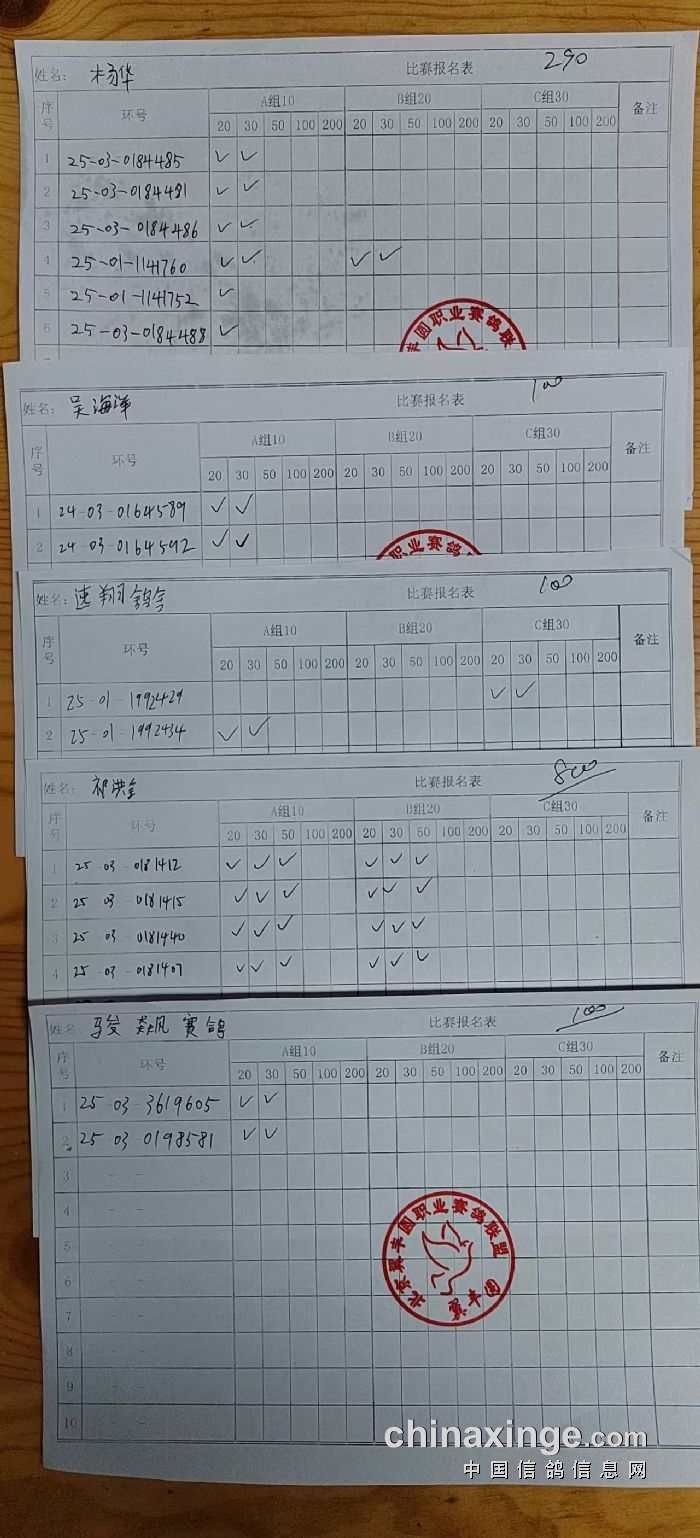 姓名: 杨华 比赛报名表 290
序号 环号 A组10 B组20 C组30 备注
20 30 50 100 200 20 30 50 100 200 20 30 50 100 200
1 25-03-0184485 ✓ ✓
2 25-03-0184481 ✓ ✓
3 25-03-0184486 ✓ ✓
4 25-01-1141760 ✓ ✓ ✓ ✓
5 25-01-1141752 ✓
6 25-03-0184488 ✓
丰圆职业赛鸽联
姓名: 吴海洋 比赛报名表 100
序号 环号 A组10 B组20 C组30 备注
20 30 50 100 200 20 30 50 100 200 20 30 50 100 200
1 24-03-0164589 ✓ ✓
2 24-03-0164592 ✓ ✓
职业赛鸽
姓名: 速翔鸽舍 比赛报名表 100
序号 环号 A组10 B组20 C组30 备注
20 30 50 100 200 20 30 50 100 200 20 30 50 100 200
1 25-01-1992429 ✓ ✓
2 25-01-1992434 ✓ ✓
姓名: 祁洪全 比赛报名表 800
序号 环号 A组10 B组20 C组30 备注
20 30 50 100 200 20 30 50 100 200 20 30 50 100 200
1 25-03-0181412 ✓ ✓ ✓ ✓ ✓ ✓
2 25 03-0181415 ✓ ✓ ✓ ✓ ✓ ✓
3 25-03-0181440 ✓ ✓ ✓ ✓ ✓ ✓
4 25-03-0181407 ✓ ✓ ✓ ✓ ✓ ✓
姓名: 骏飙赛鸽 比赛报名表 100
序号 环号 A组10 B组20 C组30 备注
20 30 50 100 200 20 30 50 100 200 20 30 50 100 200
1 25-03-3619605 ✓ ✓
2 25-03-0198581 ✓ ✓
3 - -
4 - -
5 - -
6 - -
7 - -
8 - -
9 - -
10 - -
北京翼丰圆职业赛鸽联盟
翼丰圆
chinaxinge.com
中国信鸽信息网